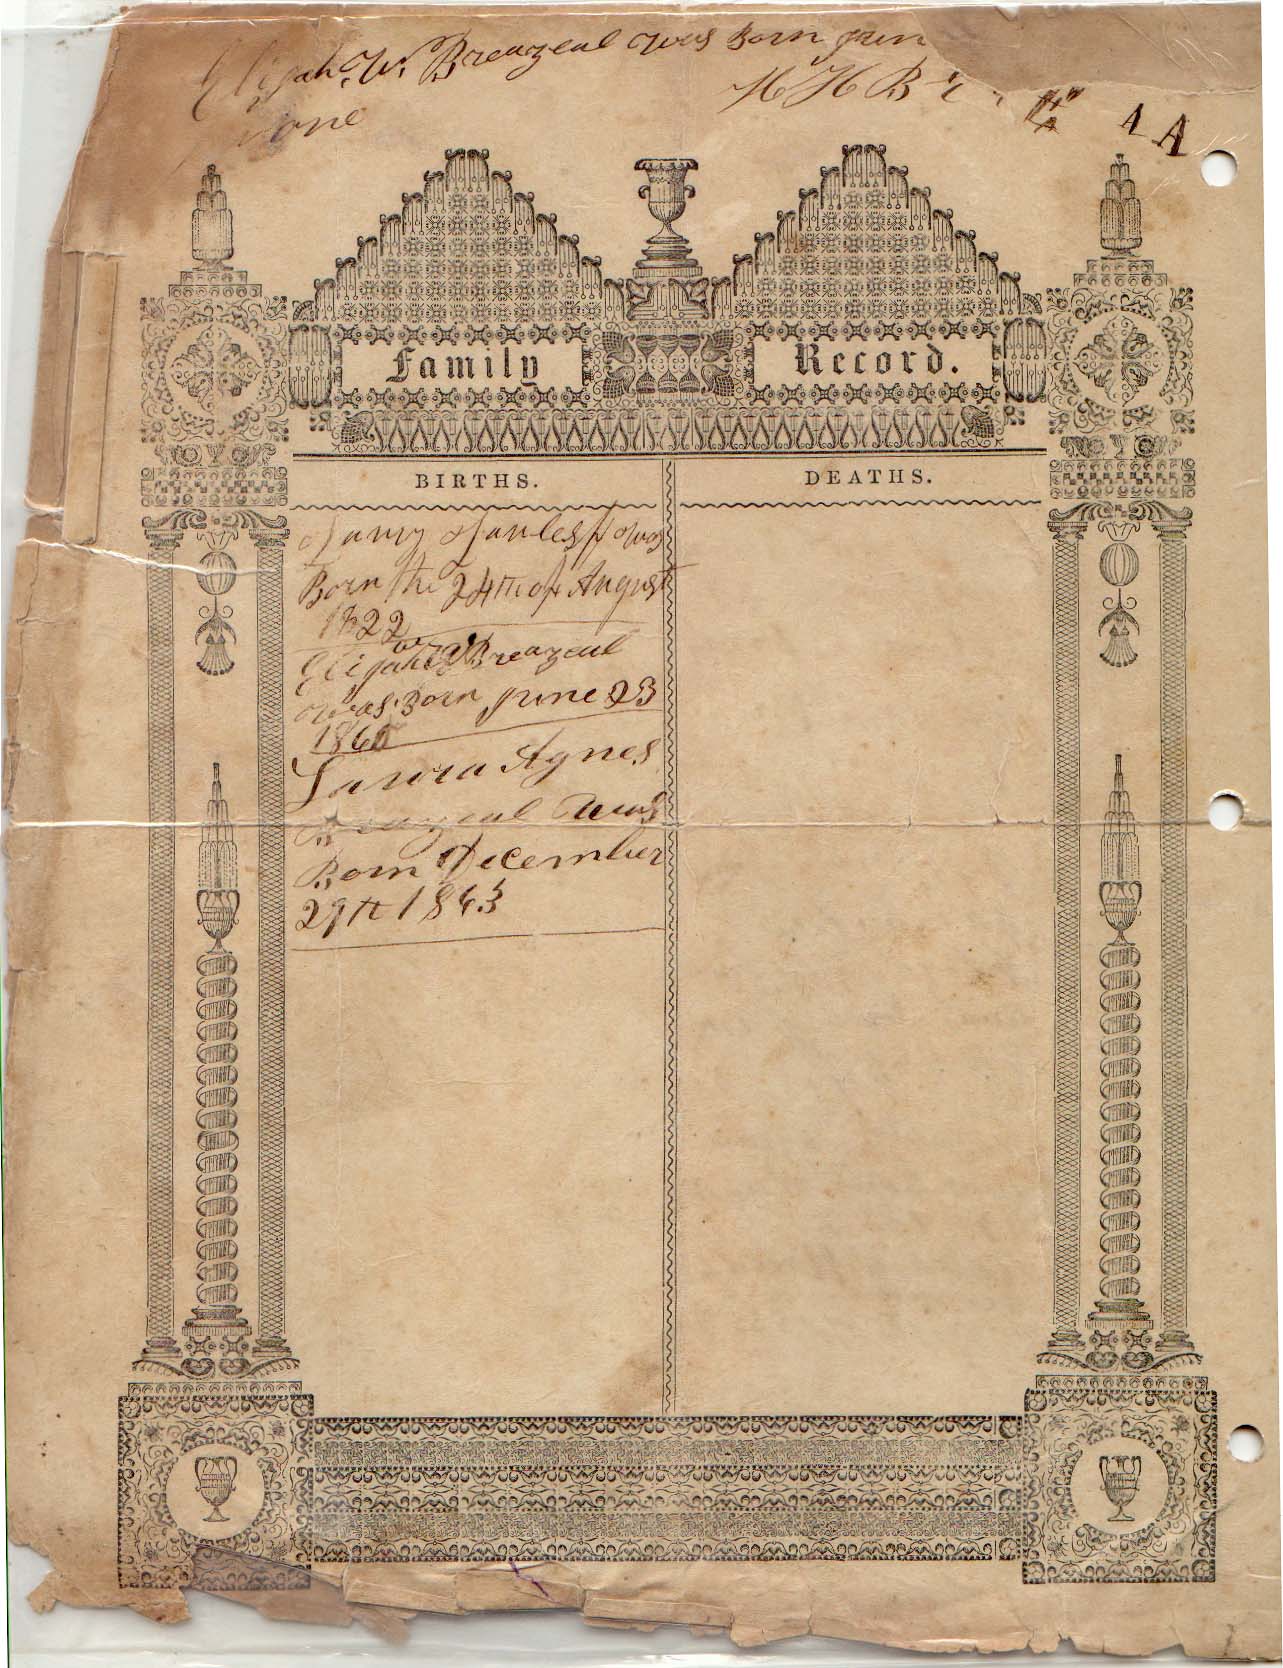 Elijah W. Breazeal was Born jun
H H B
Family Record.
BIRTHS.
DEATHS.
was
Born the 24th of August
1822
W
Elijah Breazeal
was Born june 23
186
Laura Agnes
Breazeal was
Born December
29th 1863
A A